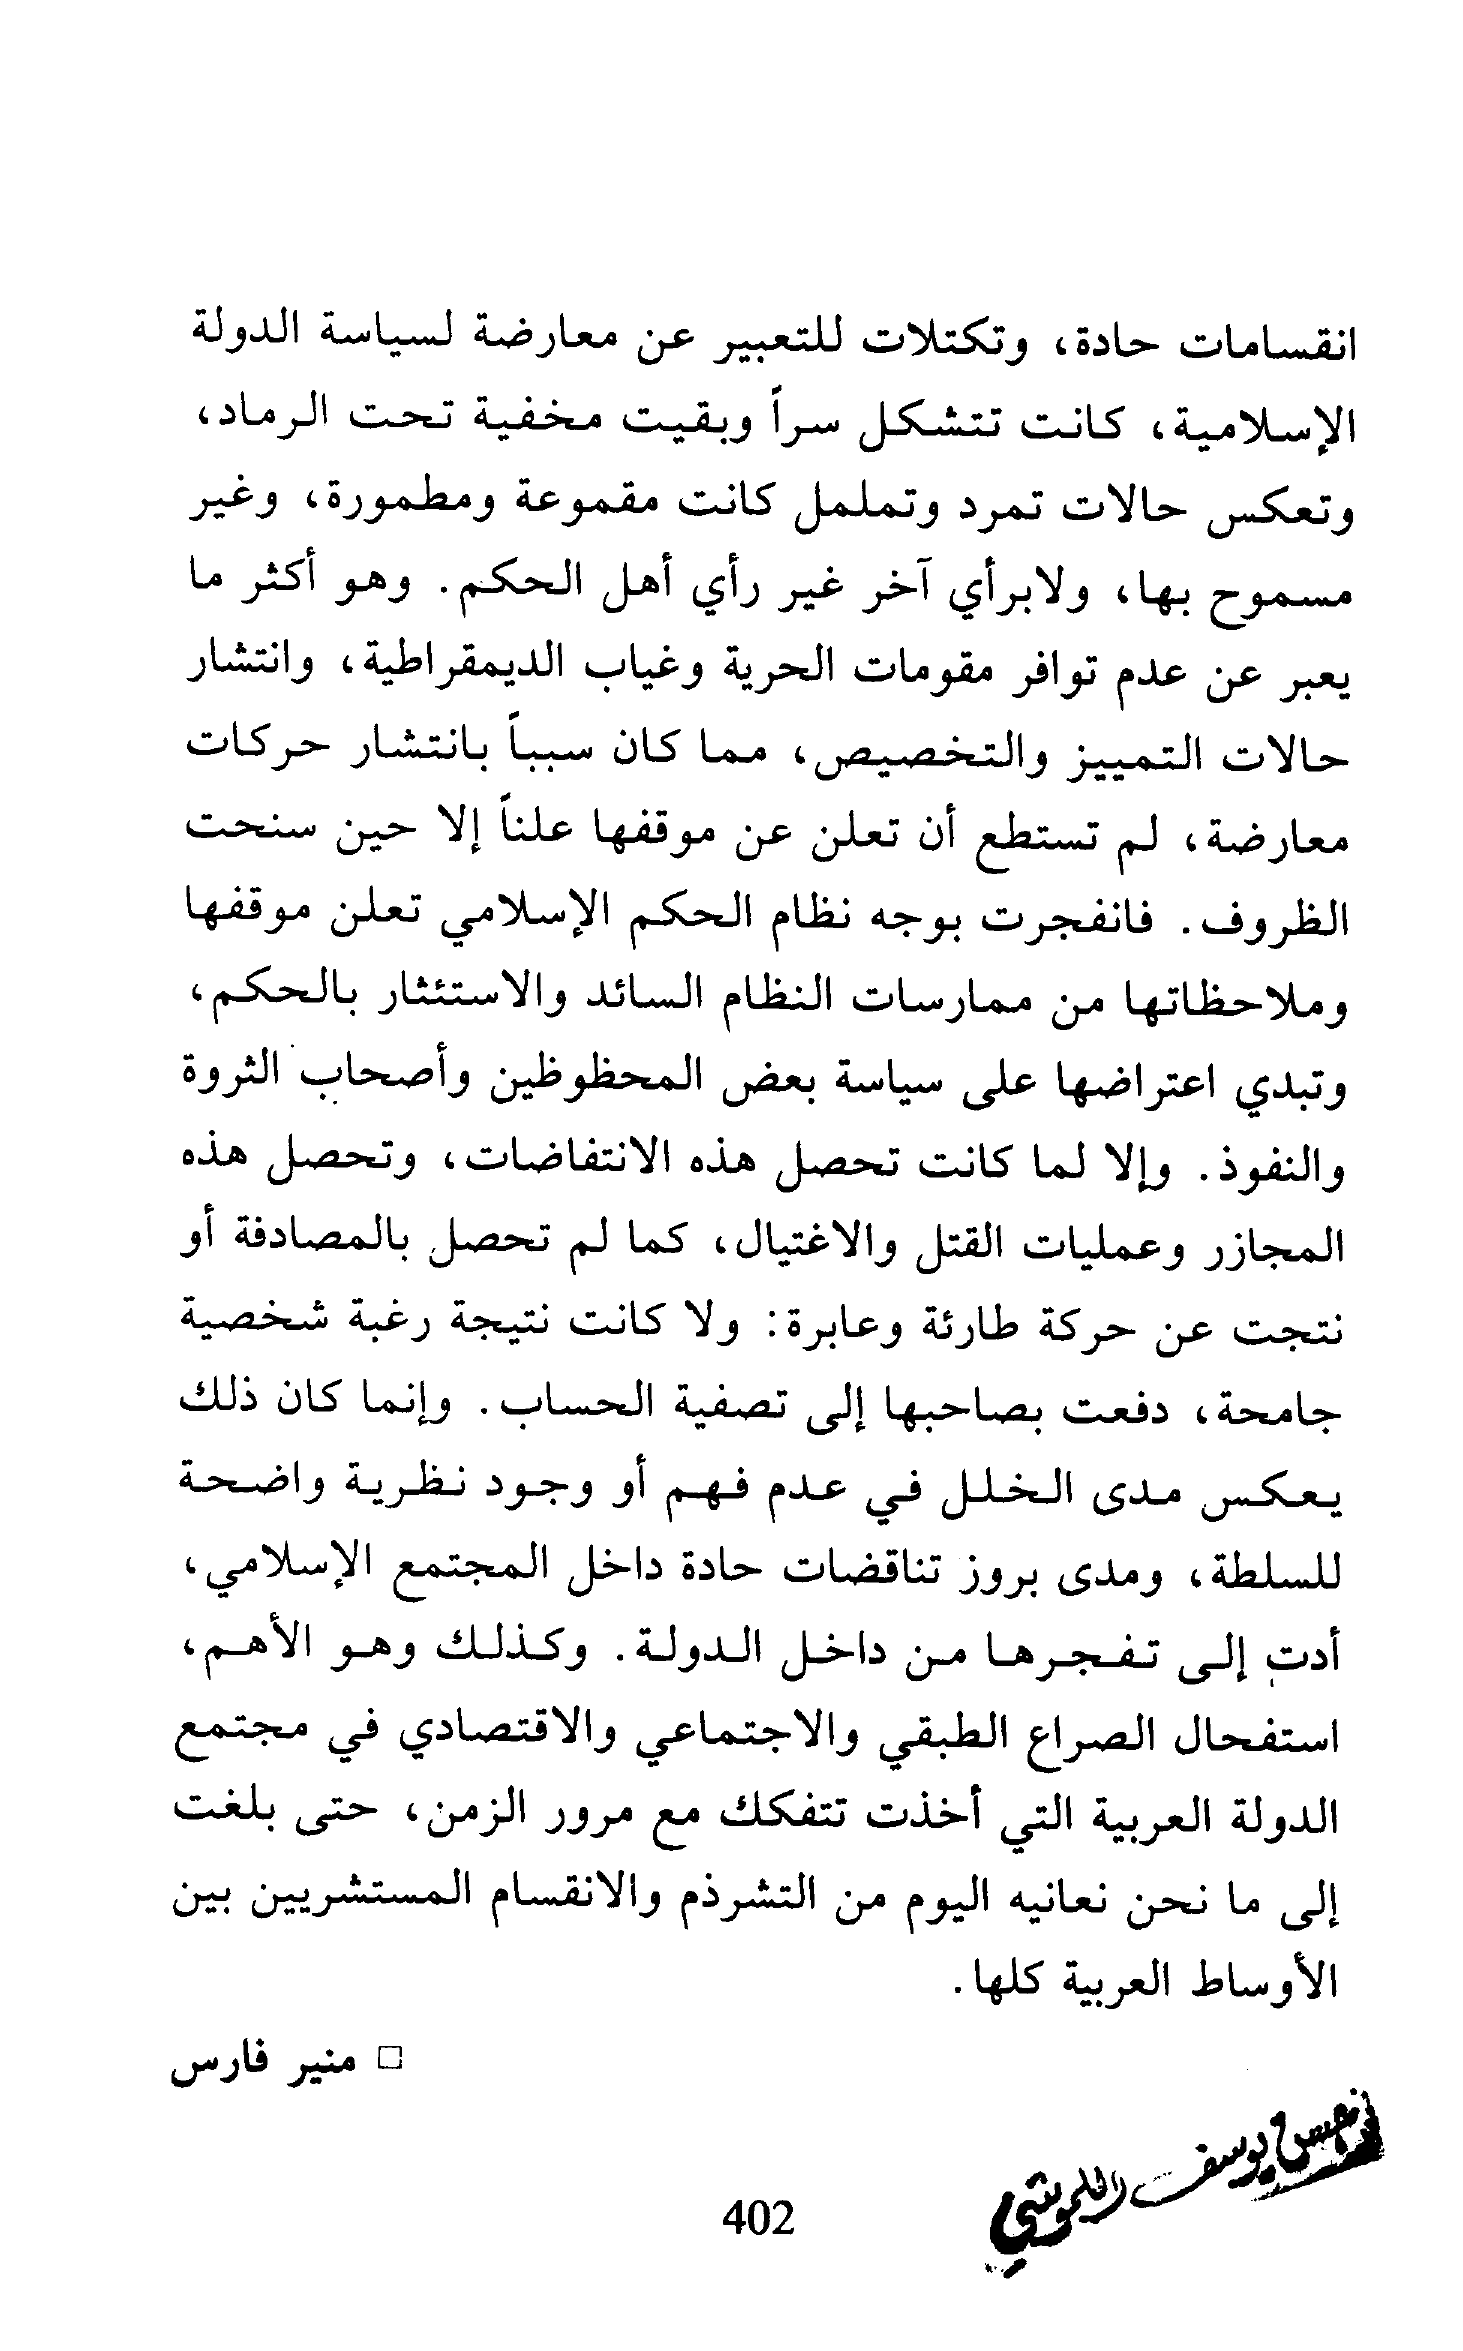 انقسامات حادة، وتكتلات للتعبير عن معارضة لسياسة الدولة
الإسلامية، كانت تتشكل سراً وبقيت مخفية تحت الرماد،
وتعكس حالات تمرد وتململ كانت مقموعة ومطمورة، وغير
مسموح بها، ولابرأي آخر غير رأي أهل الحكم. وهو أكثر ما
يعبر عن عدم توافر مقومات الحرية وغياب الديمقراطية، وانتشار
حالات التمييز والتخصيص، مما كان سبباً بانتشار حركات
معارضة، لم تستطع أن تعلن عن موقفها علناً إلا حين سنحت
الظروف. فانفجرت بوجه نظام الحكم الإسلامي تعلن موقفها
وملاحظاتها من ممارسات النظام السائد والاستئثار بالحكم،
وتبدي اعتراضها على سياسة بعض المحظوظين وأصحاب الثروة
والنفوذ. وإلا لما كانت تحصل هذه الانتفاضات، وتحصل هذه
المجازر وعمليات القتل والاغتيال، كما لم تحصل بالمصادفة أو
نتجت عن حركة طارئة وعابرة: ولا كانت نتيجة رغبة شخصية
جامحة، دفعت بصاحبها إلى تصفية الحساب. وإنما كان ذلك
يعكس مدى الخلل في عدم فهم أو وجود نظرية واضحة
للسلطة، ومدى بروز تناقضات حادة داخل المجتمع الإسلامي،
أدت إلى تفجرها من داخل الدولة. وكذلك وهو الأهم،
استفحال الصراع الطبقي والاجتماعي والاقتصادي في مجتمع
الدولة العربية التي أخذت تتفكك مع مرور الزمن، حتى بلغت
إلى ما نحن نعانيه اليوم من التشرذم والانقسام المستشريين بين
الأوساط العربية كلها.
□ منير فارس
يوسف
402